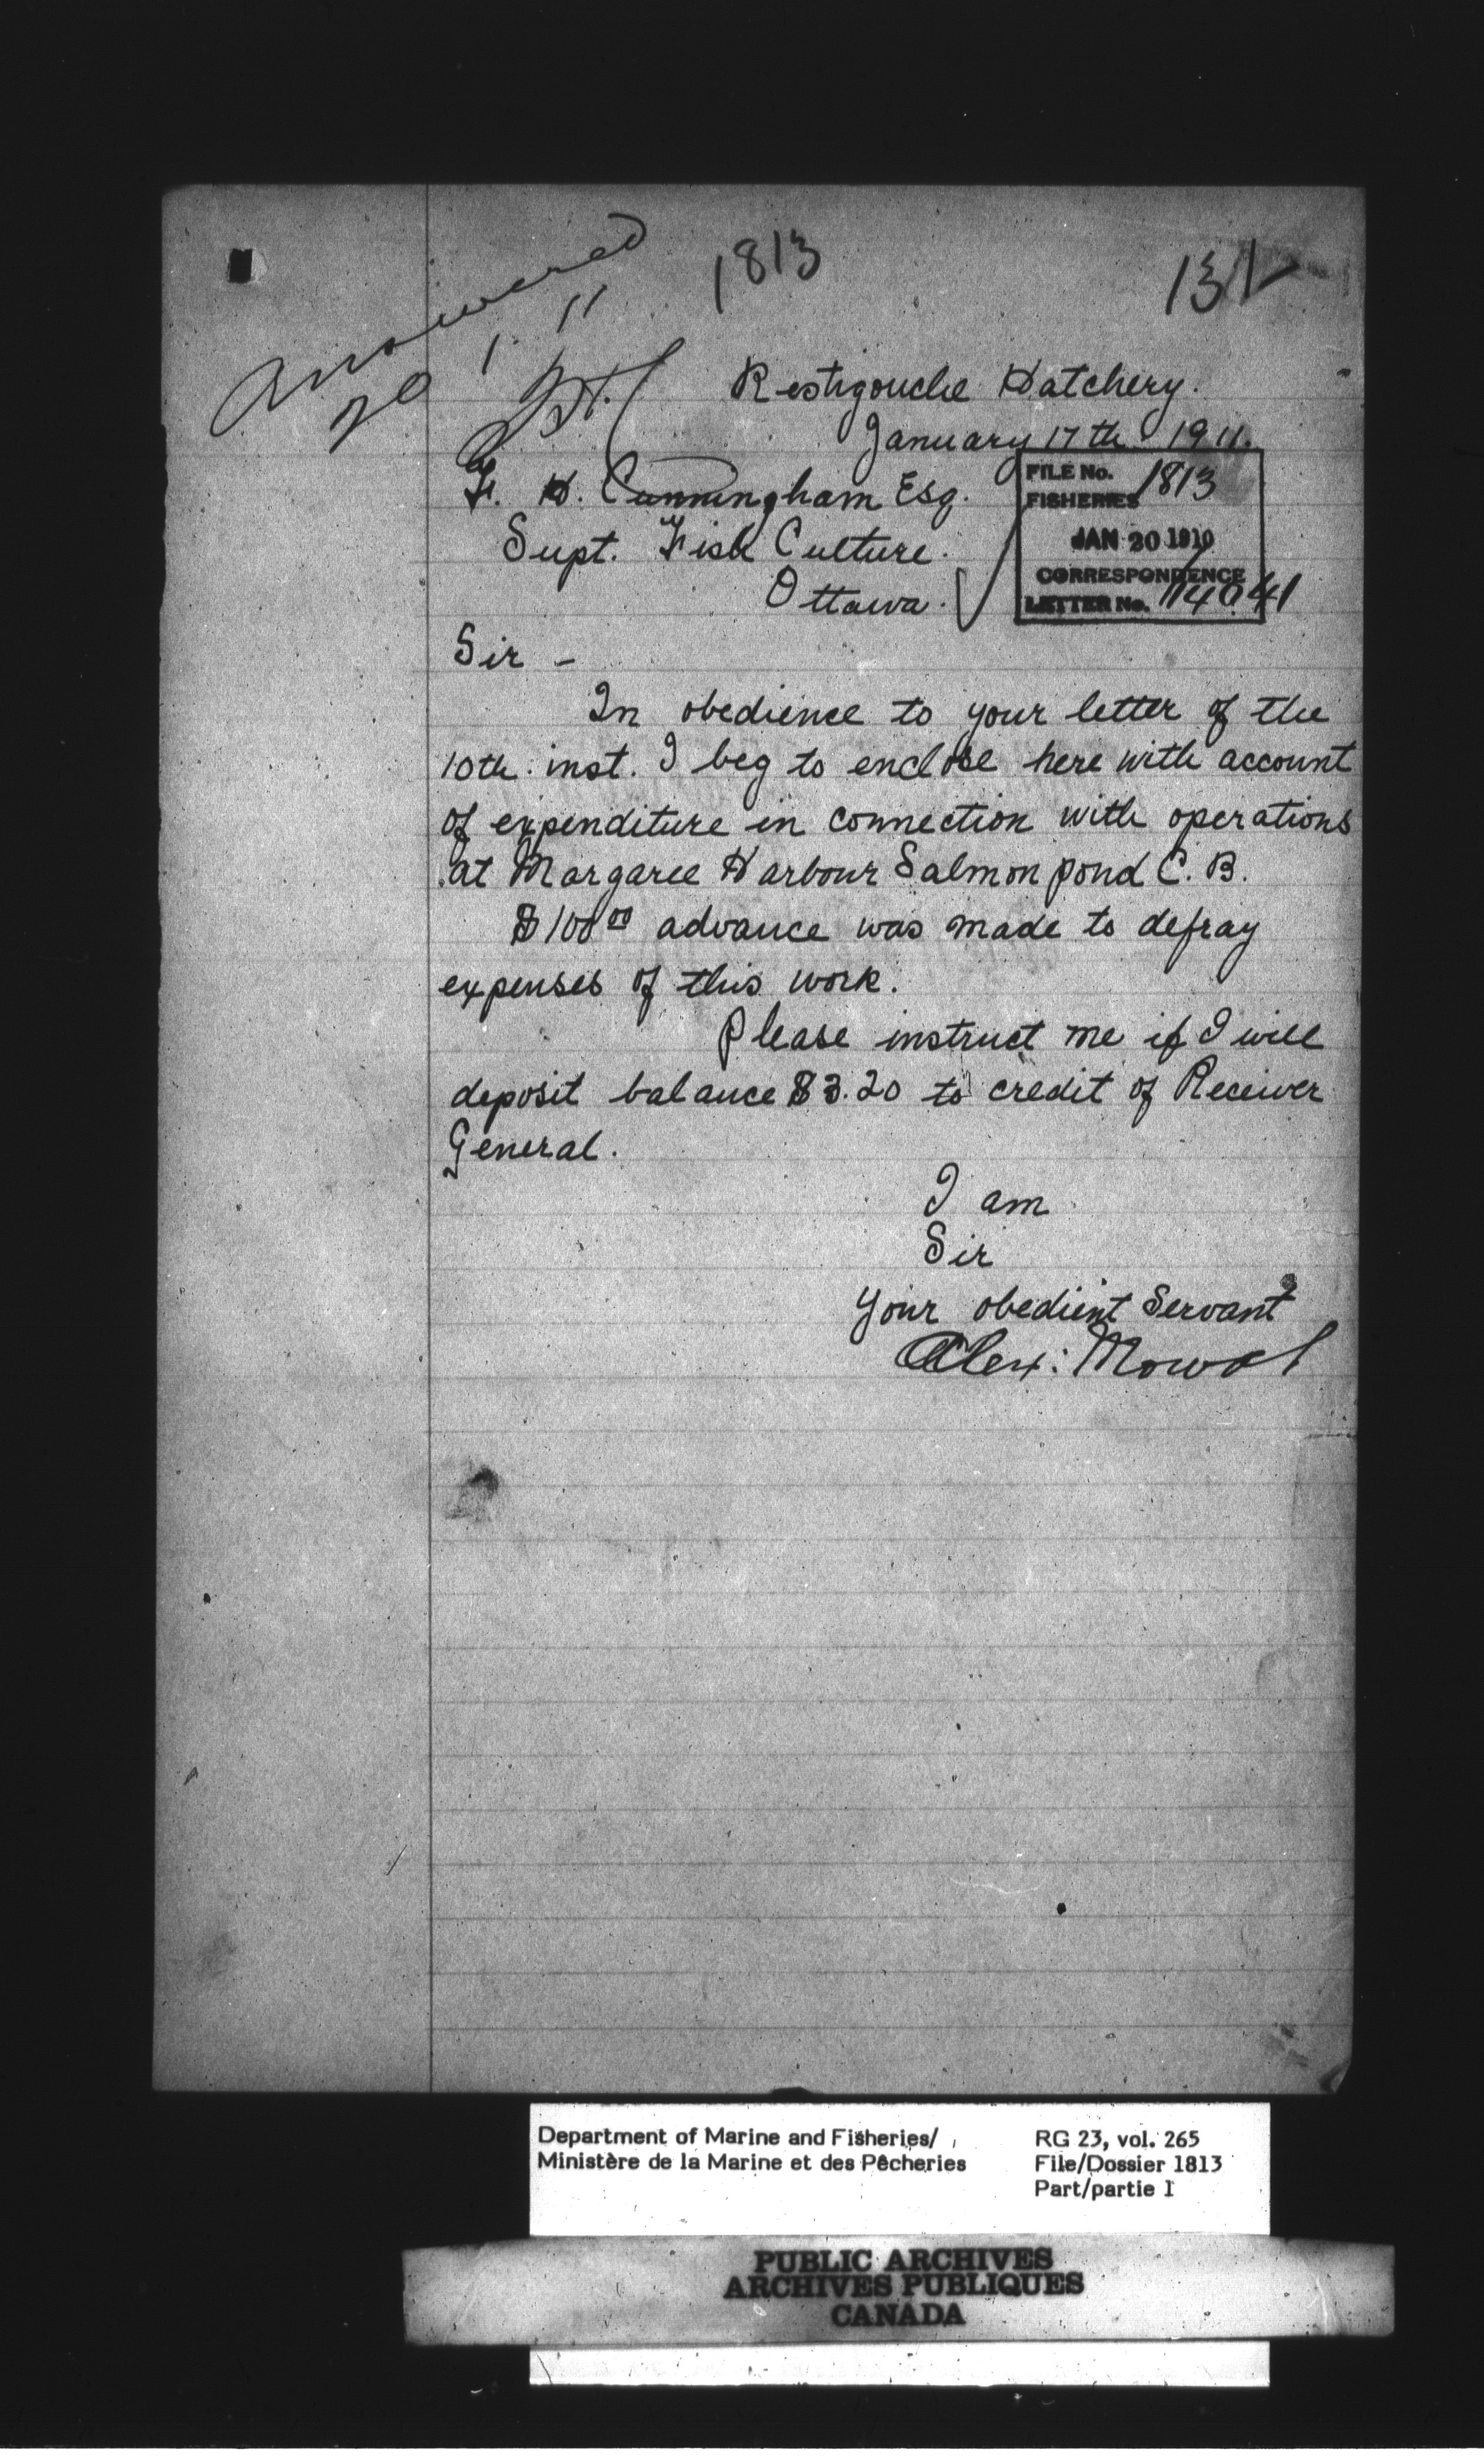 1813
131
answered
20 1. 11
Restigouche Hatchery.
January 17th 1911.
F. H. Cunningham Esq.
Supt. Fish Culture.
Ottawa.
FILE No. 1813
FISHERIES
JAN 20 1910
CORRESPONDENCE
LETTER No.
Sir -
In obedience to your letter of the
10th. inst. I beg to enclose here with account
of expenditure in connection with operations
at Margaree Harbour Salmon pond C. B.
$100 00 advance was made to defray
expenses of this work.
Please instruct me if I will
deposit balance $3.20 to credit of Receiver
General.
I am
Sir
Your obedient Servant
Alex: Mowat
Department of Marine and Fisheries/
Ministère de la Marine et des Pêcheries
RG 23, vol. 265
File/Dossier 1813
Part/partie 1
PUBLIC ARCHIVES
ARCHIVES PUBLIQUES
CANADA